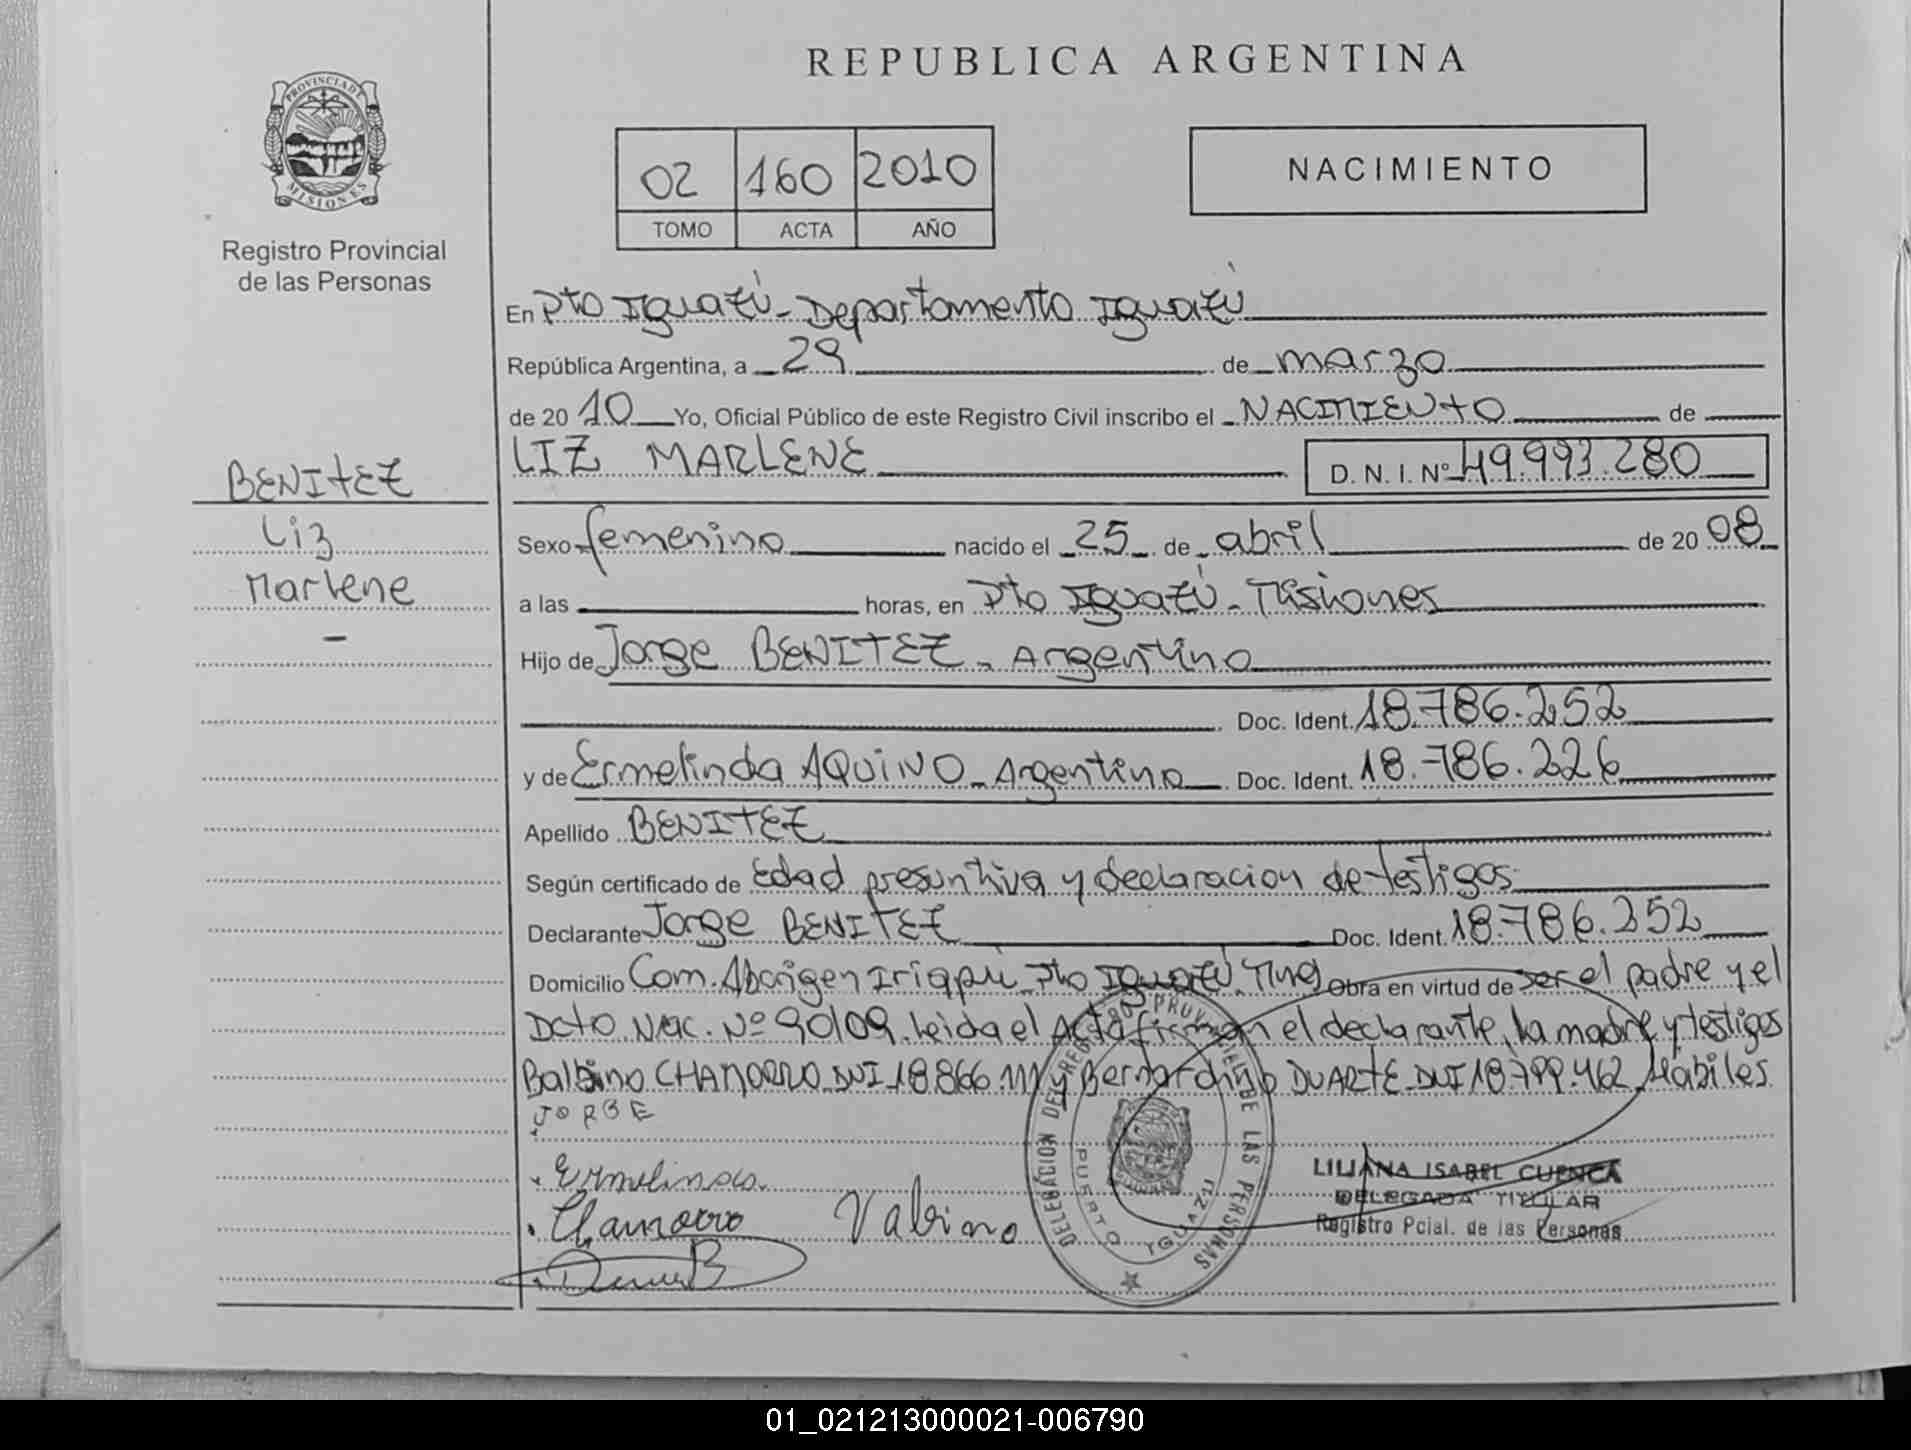 REPUBLICA ARGENTINA
PROVINCIA DE
MISIONES
Registro Provincial
de las Personas
02 160 2010
TOMO ACTA AÑO
NACIMIENTO
En Pto Iguazú - Departamento Iguazú
República Argentina, a 29 de marzo
de 2010 Yo, Oficial Público de este Registro Civil inscribo el NACIMIENTO de
LIZ MARLENE D. N. I. Nº 49.993.280
BENITEZ
Liz
Marlene
Sexo femenino nacido el 25 de abril de 2008
a las horas, en Pto Iguazú - Misiones
Hijo de Jorge BENITEZ - Argentino
Doc. Ident. 18.786.252
y de Ermelinda AQUINO - Argentina Doc. Ident. 18.786.226
Apellido BENITEZ
Según certificado de Edad presuntiva y declaracion de testigos
Declarante Jorge BENITEZ Doc. Ident. 18.786.252
Domicilio Com. Aborigen Iriapú - Pto Iguazú. Mnes Obra en virtud de ser el padre y el
Dcto. Nac. Nº 90/09. Leida el Acta firman el declarante, la madre y testigos
Balbino CHAMORRO DNI 18.866.111 y Bernardino DUARTE DNI 18.799.462 Hábiles
JORGE
Ermelinda
Chamorro Valino
DELEGACION DEL REGISTRO PROVINCIAL DE LAS PERSONAS
PUERTO IGUAZU
LILIANA ISABEL CUENCA
DELEGADA TITULAR
Registro Pcial. de las Personas
01_021213000021-006790